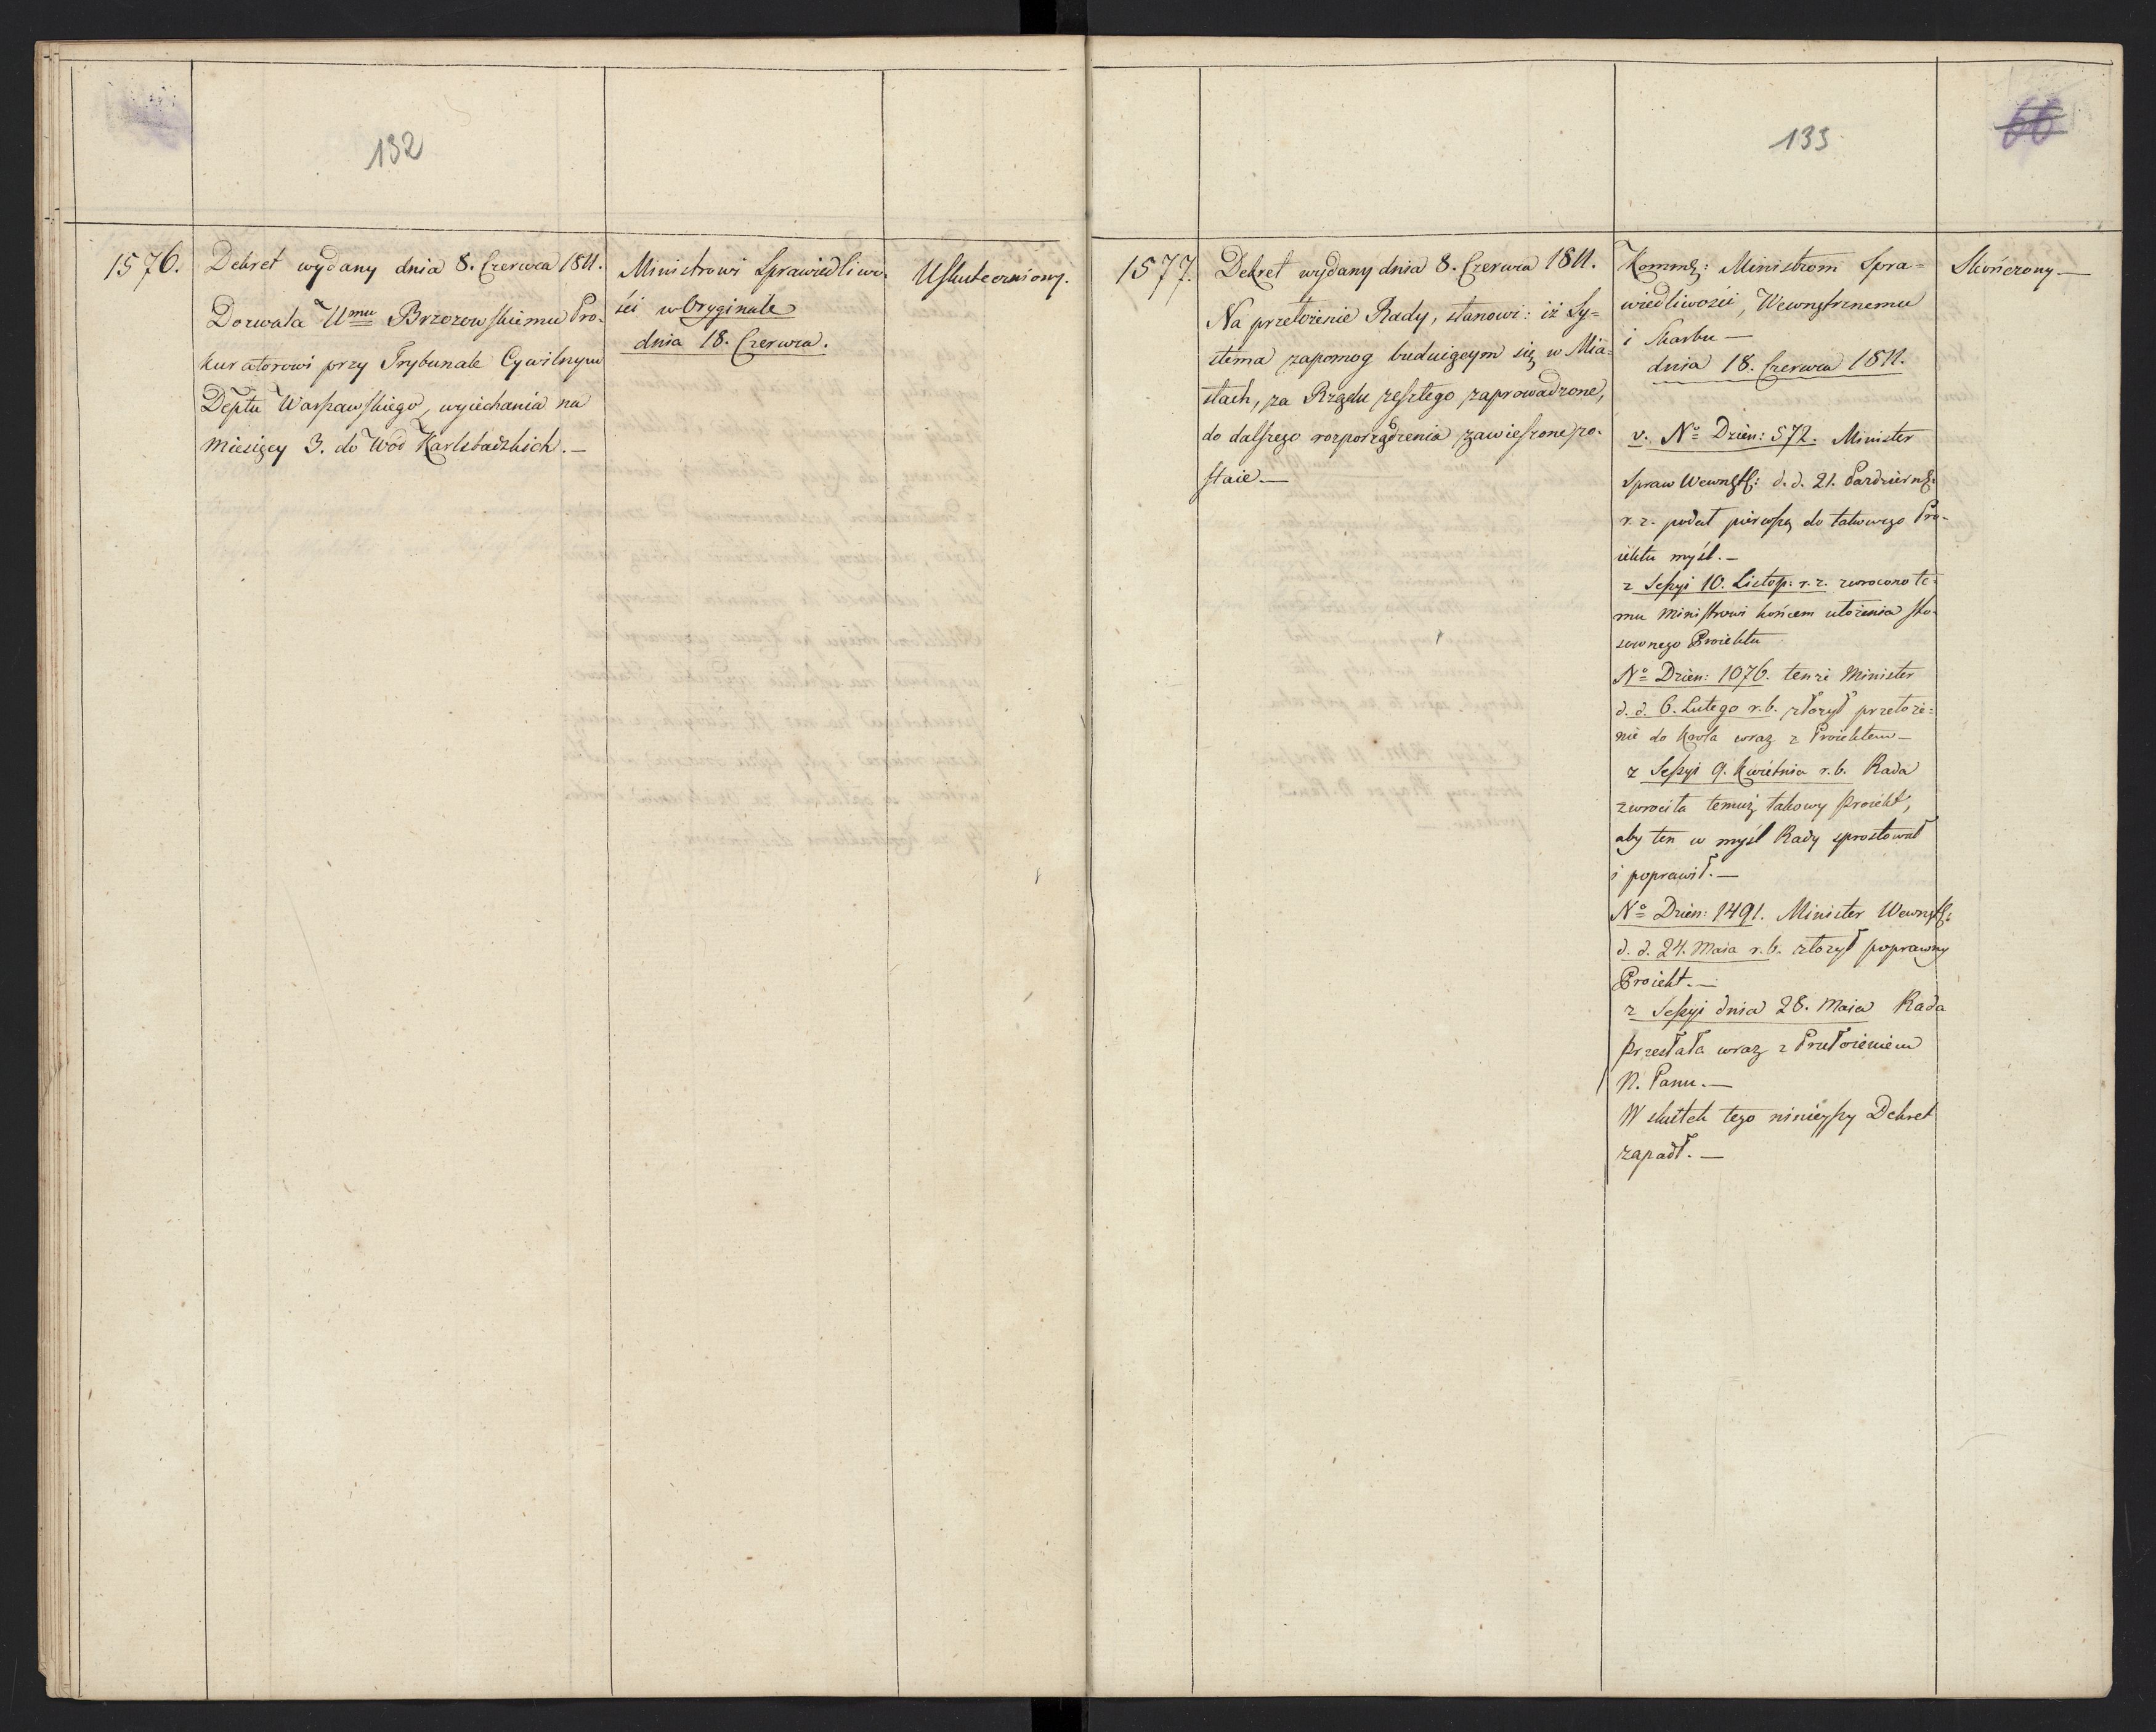 132
1576.
Dekret wydany dnia 8. Czerwca 1811.
Dozwala Umu Brzozowskiemu Pro-
kuratorowi przy Trybunale Cywilnym
Deptu Warszawskiego, wyiechania na
miesięcy 3. do Wód Karlsbadzkich. —
Ministrowi Sprawiedliwo-
ści w Oryginale
dnia 18. Czerwca.
Uskuteczniony.
133
66
1577.
Dekret wydany dnia 8. Czerwca 1811.
Na przełożenie Rady, stanowi: iż Sy=
stema zapomog buduiącym się w Mia=
stach, za Rządu zeszłego zaprowadzone,
do dalszego rozporządzenia zawieszone zo-
staie. —
Kommk: Ministrom Spra=
wiedliwości, Wewnętrznemu
i Skarbu —
dnia 18. Czerwca 1811.
v. No Dzien: 572. Minister
Spraw Wewnętr: d. d. 21. Październ:
r. z. podał pierwszą do takowego Pro-
iektu myśl. —
z Sessyi 10. Listop: r. z. zwrocono te-
mu Ministrowi końcem ułożenia sto-
sownego Proiektu
No Dzien: 1076. tenże Minister
d. d. 6. Lutego r. b. złożył przełoże=
nie do Króla wraz z Proiektem —
z Sessyi 9. Kwietnia r. b. Rada
zwrociła temuż takowy Proiekt,
aby ten w myśl Rady sprostował
i poprawił. —
No Dzien: 1491. Minister Wewnętr:
d. d. 24. Maia r. b. złożył poprawny
Proiekt. —
z Sessyi dnia 28. Maia Rada
przesłała wraz z Przełożeniem
N. Panu. —
W skutek tego ninieyszy Dekret
zapadł. —
Skończony —